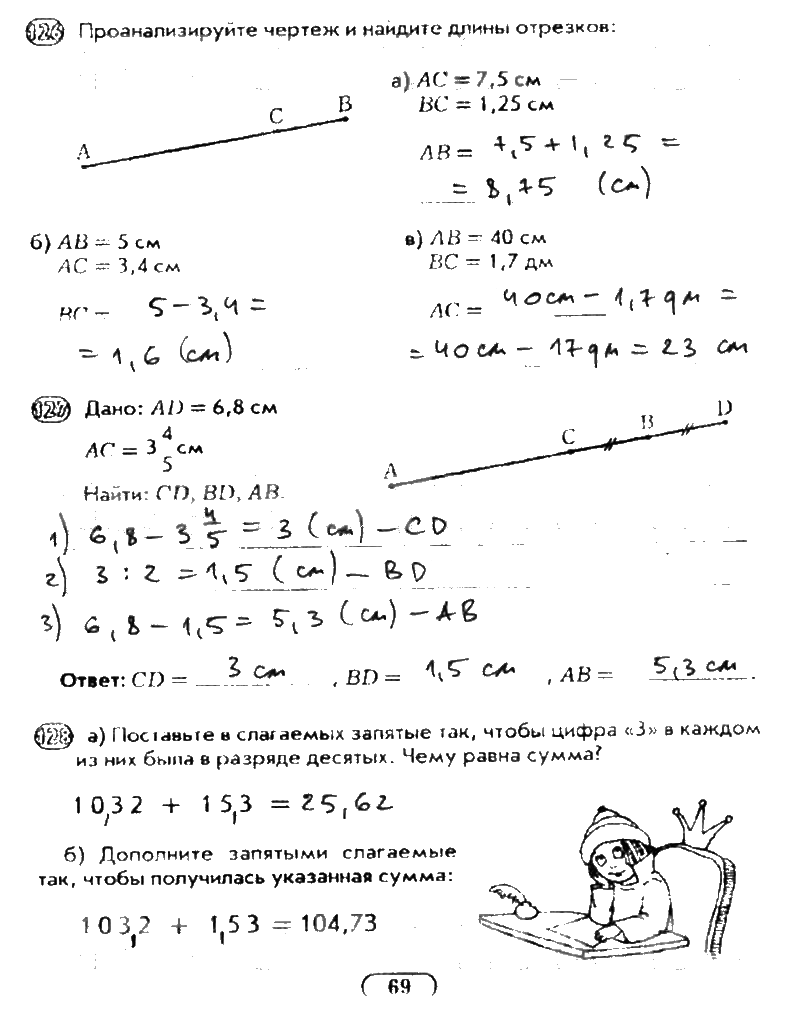 126 Проанализируйте чертеж и найдите длины отрезков:
A C B
а) AC = 7,5 см
BC = 1,25 см
AB = 7,5 + 1,25 =
= 8,75 (см)
б) AB = 5 см
AC = 3,4 см
BC = 5 – 3,4 =
= 1,6 (см)
в) AB = 40 см
BC = 1,7 дм
AC = 40 см – 1,7 дм =
= 40 см – 17 дм = 23 см
127 Дано: AD = 6,8 см
AC = 3 4/5 см
Найти: CD, BD, AB.
A C B D
1) 6,8 – 3 4/5 = 3 (см) – CD
2) 3 : 2 = 1,5 (см) – BD
3) 6,8 – 1,5 = 5,3 (см) – AB
Ответ: CD = 3 см, BD = 1,5 см, AB = 5,3 см.
128 а) Поставьте в слагаемых запятые так, чтобы цифра «3» в каждом
из них была в разряде десятых. Чему равна сумма?
10,32 + 15,3 = 25,62
б) Дополните запятыми слагаемые
так, чтобы получилась указанная сумма:
103,2 + 1,53 = 104,73
69